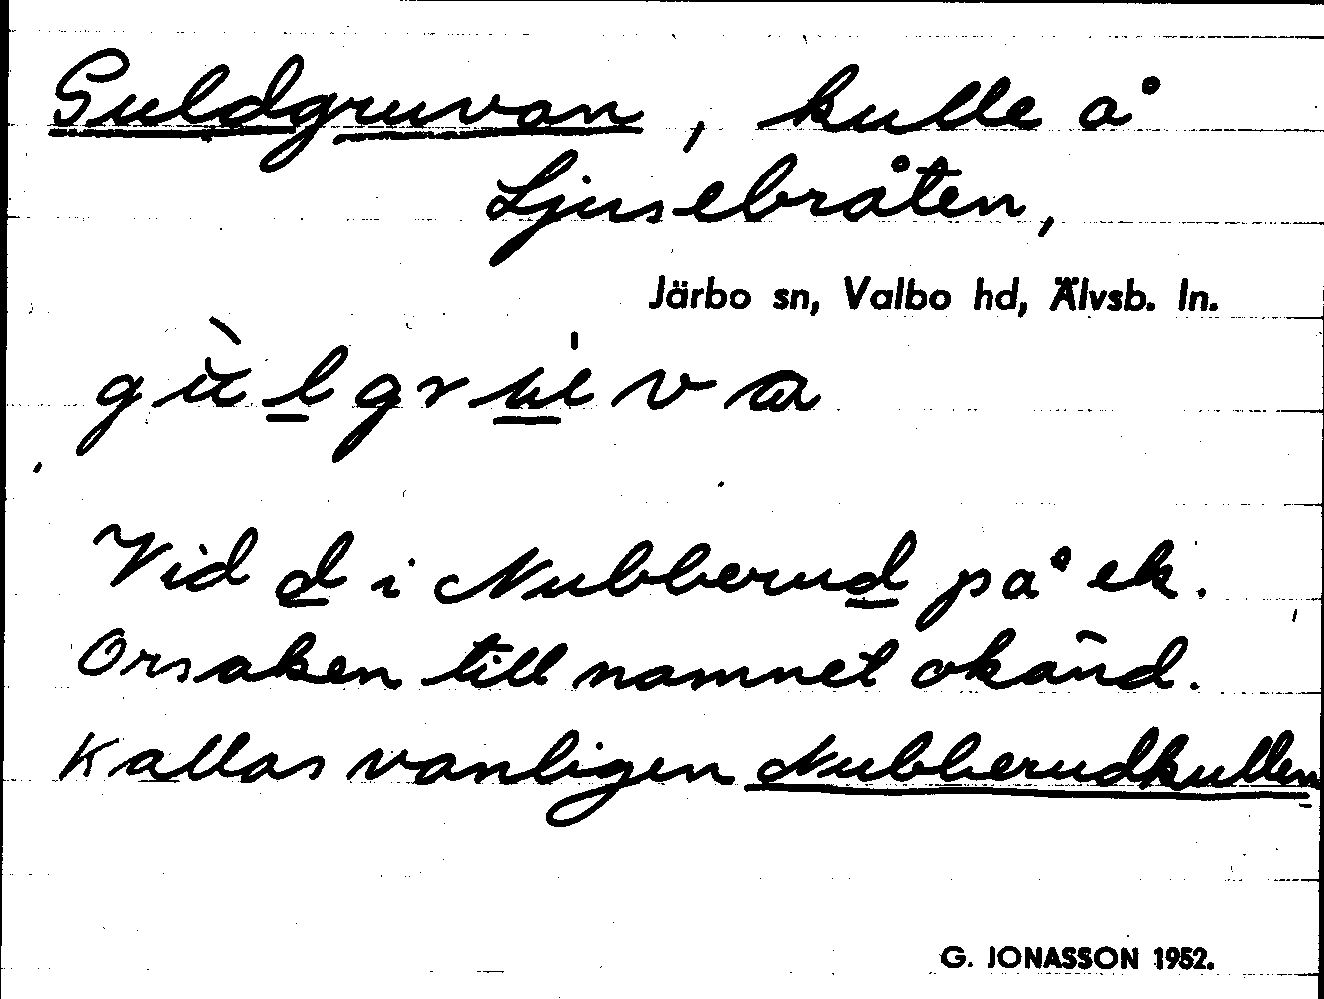 Guldgruvan, kulle å
Ljusebråten,
Järbo sn, Valbo hd, Älvsb. ln.
Vid d i Nubberud på ek.
Orsaken till namnet okänd.
Kallas vanligen Nubberudkullen
G. JONASSON 1952.